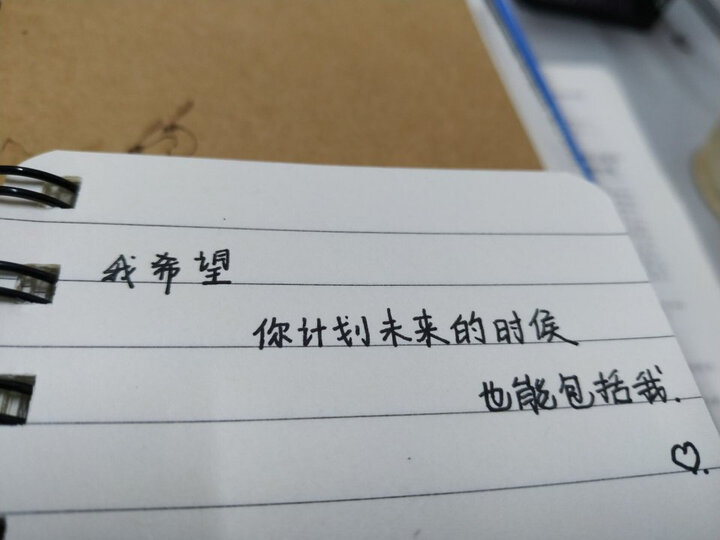 我希望
你计划未来的时候
也能包括我.
♡.